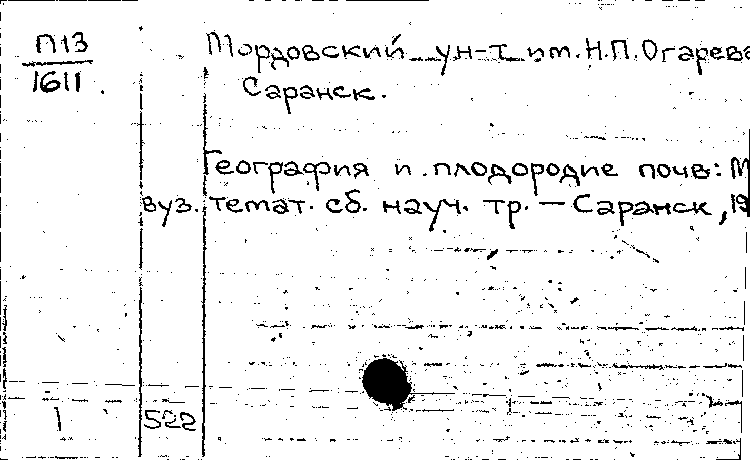 П13 Мордовский ун-т им. Н.П. Огарева
1611. Саранск.
География и плодородие почв: М
вуз. темат. сб. науч. тр. — Саранск, 19
1 522